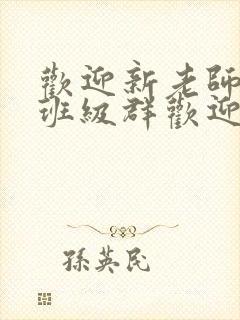 歡迎新老師
班級群歡迎
孫英民